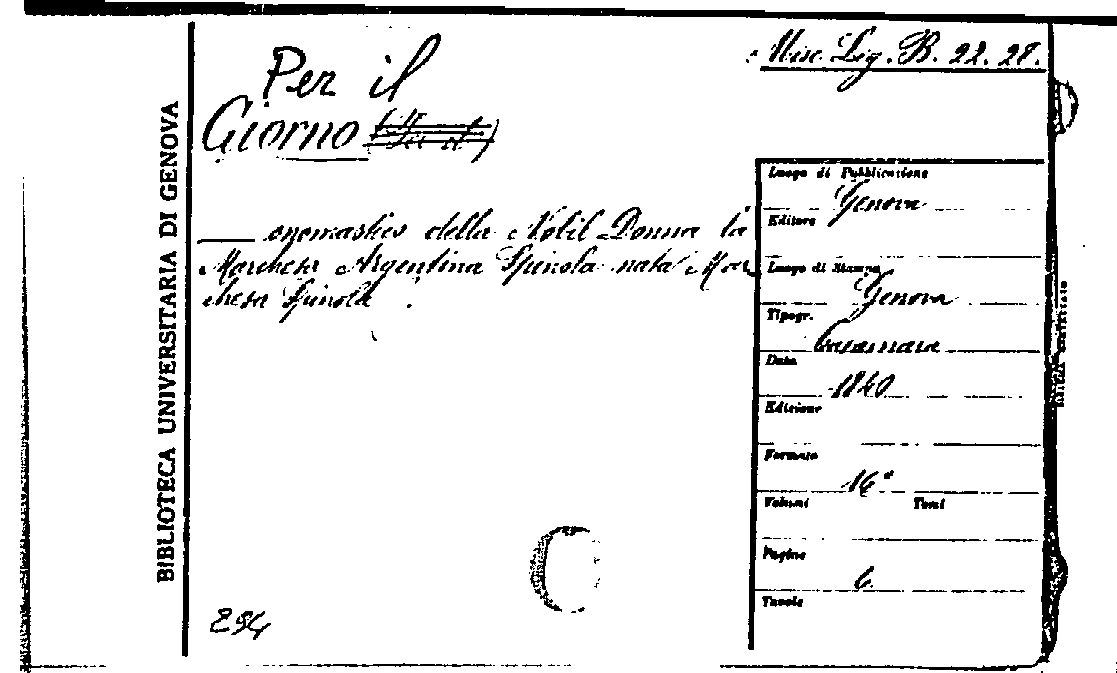 BIBLIOTECA UNIVERSITARIA DI GENOVA
Per il
Giorno (Per il)
onomastico della Nobil Donna la
Marchesa Argentina Spinola nata Mar
chesa Spinola
254
Misc. Lig. B. 22. 28.
Luogo di Pubblicazione
Genova
Editore
Luogo di Stampa
Genova
Tipogr.
Casamara
Data
1840
Edizione
Formato
16°
Volumi Tomi
Pagine
6
Tavole